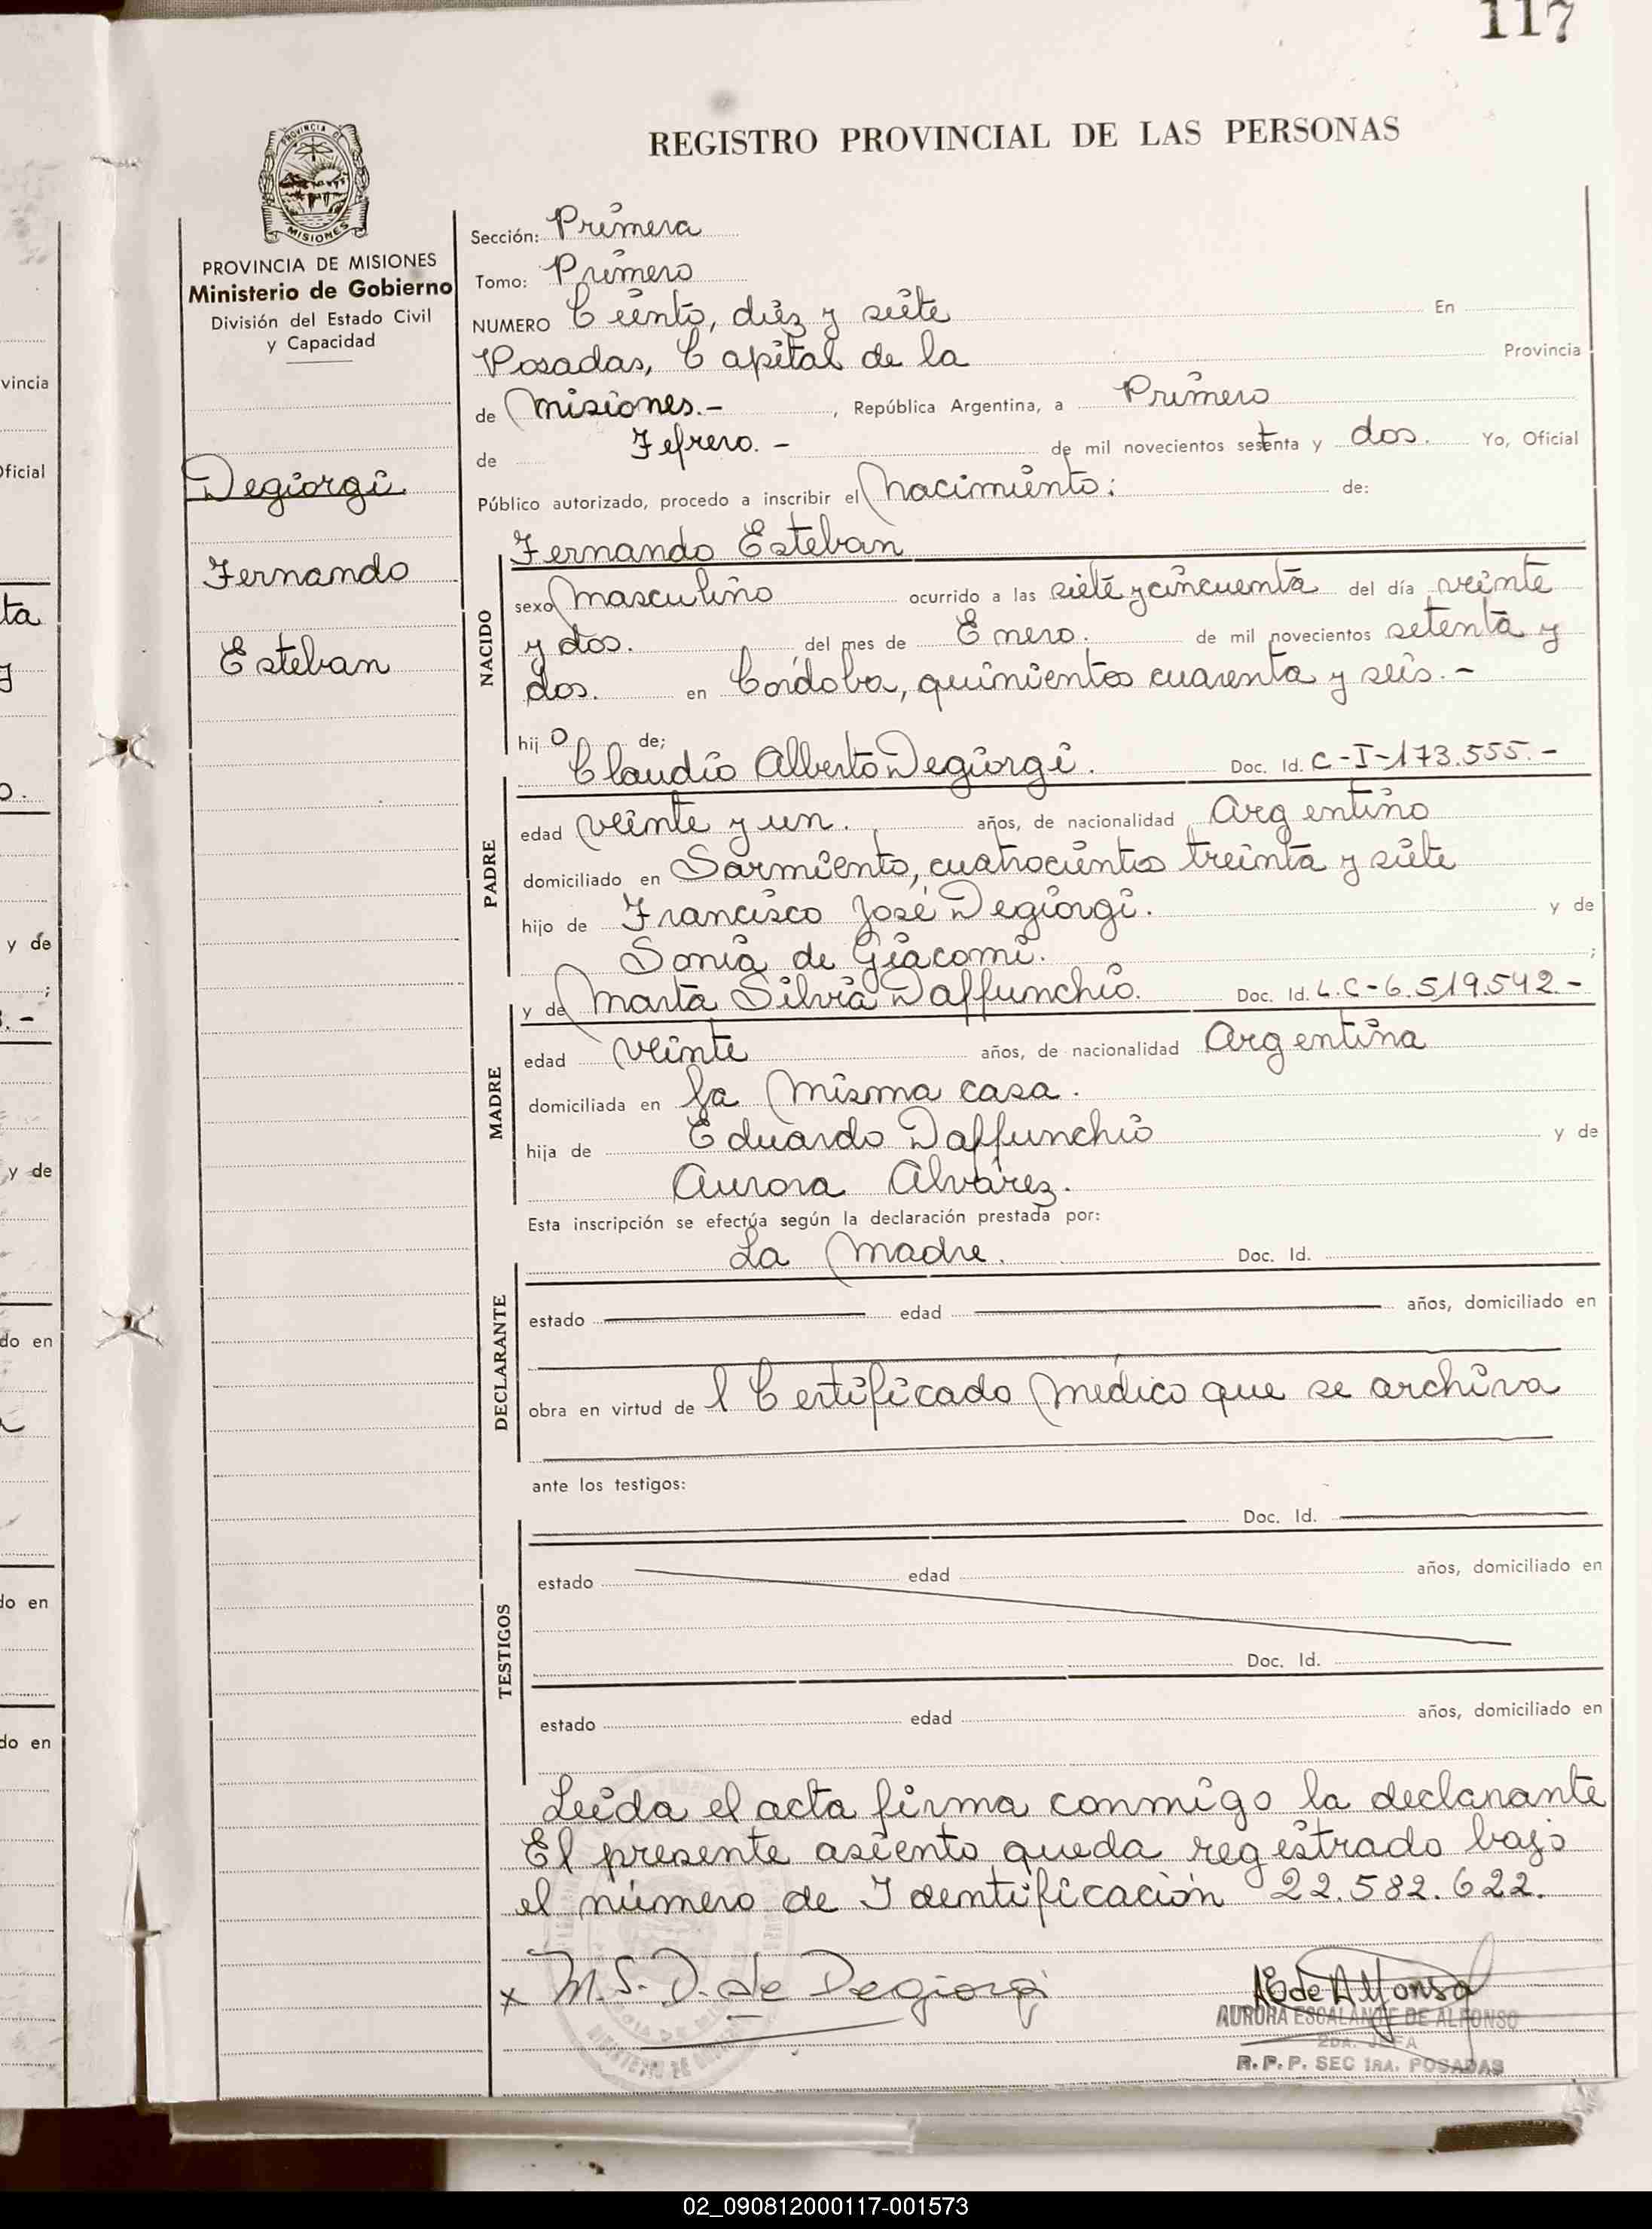 117
REGISTRO PROVINCIAL DE LAS PERSONAS
PROVINCIA DE
MISIONES
PROVINCIA DE MISIONES
Ministerio de Gobierno
División del Estado Civil
y Capacidad
Degiorgi
Fernando
Esteban
Sección: Primera
Tomo: Primero
NUMERO Ciento, diez y siete En
Posadas, Capital de la Provincia
de Misiones.- , República Argentina, a Primero
de Febrero. - de mil novecientos setenta y dos. Yo, Oficial
Público autorizado, procedo a inscribir el Nacimiento: de:
Fernando Esteban
NACIDO
sexo Masculino ocurrido a las siete y cincuenta del día veinte
y dos. del mes de Enero. de mil novecientos setenta y
dos. en Córdoba, quinientos cuarenta y seis. -
hij o de;
Claudio Alberto Degiorgi. Doc. Id. C-I-173.555.-
PADRE
edad veinte y un. años, de nacionalidad Argentino
domiciliado en Sarmiento, cuatrocientos treinta y siete
hijo de Francisco José Degiorgi. y de
Sonia de Giacomi. ;
y de Marta Silvia Daffunchio. Doc. Id. L.C-6.519.542.-
MADRE
edad veinte años, de nacionalidad Argentina
domiciliada en la misma casa.
hija de Eduardo Daffunchio y de
Aurora Alvárez.
Esta inscripción se efectúa según la declaración prestada por:
La Madre. Doc. Id.
DECLARANTE
estado edad años, domiciliado en
obra en virtud de l Certificado médico que se archiva
ante los testigos:
Doc. Id.
TESTIGOS
estado edad años, domiciliado en
Doc. Id.
estado edad años, domiciliado en
Leida el acta firma conmigo la declarante
El presente asiento queda registrado bajo
el número de Identificación 22.582.622.
x M.S. D. de Degiorgi
AE de Alfonso
AURORA ESCALANTE DE ALFONSO
2DA. JEFA
R.P.P. SEC 1RA. POSADAS
vincia
Oficial
ta
y
o.
y de
;
y de
do en
do en
do en
02_090812000117-001573